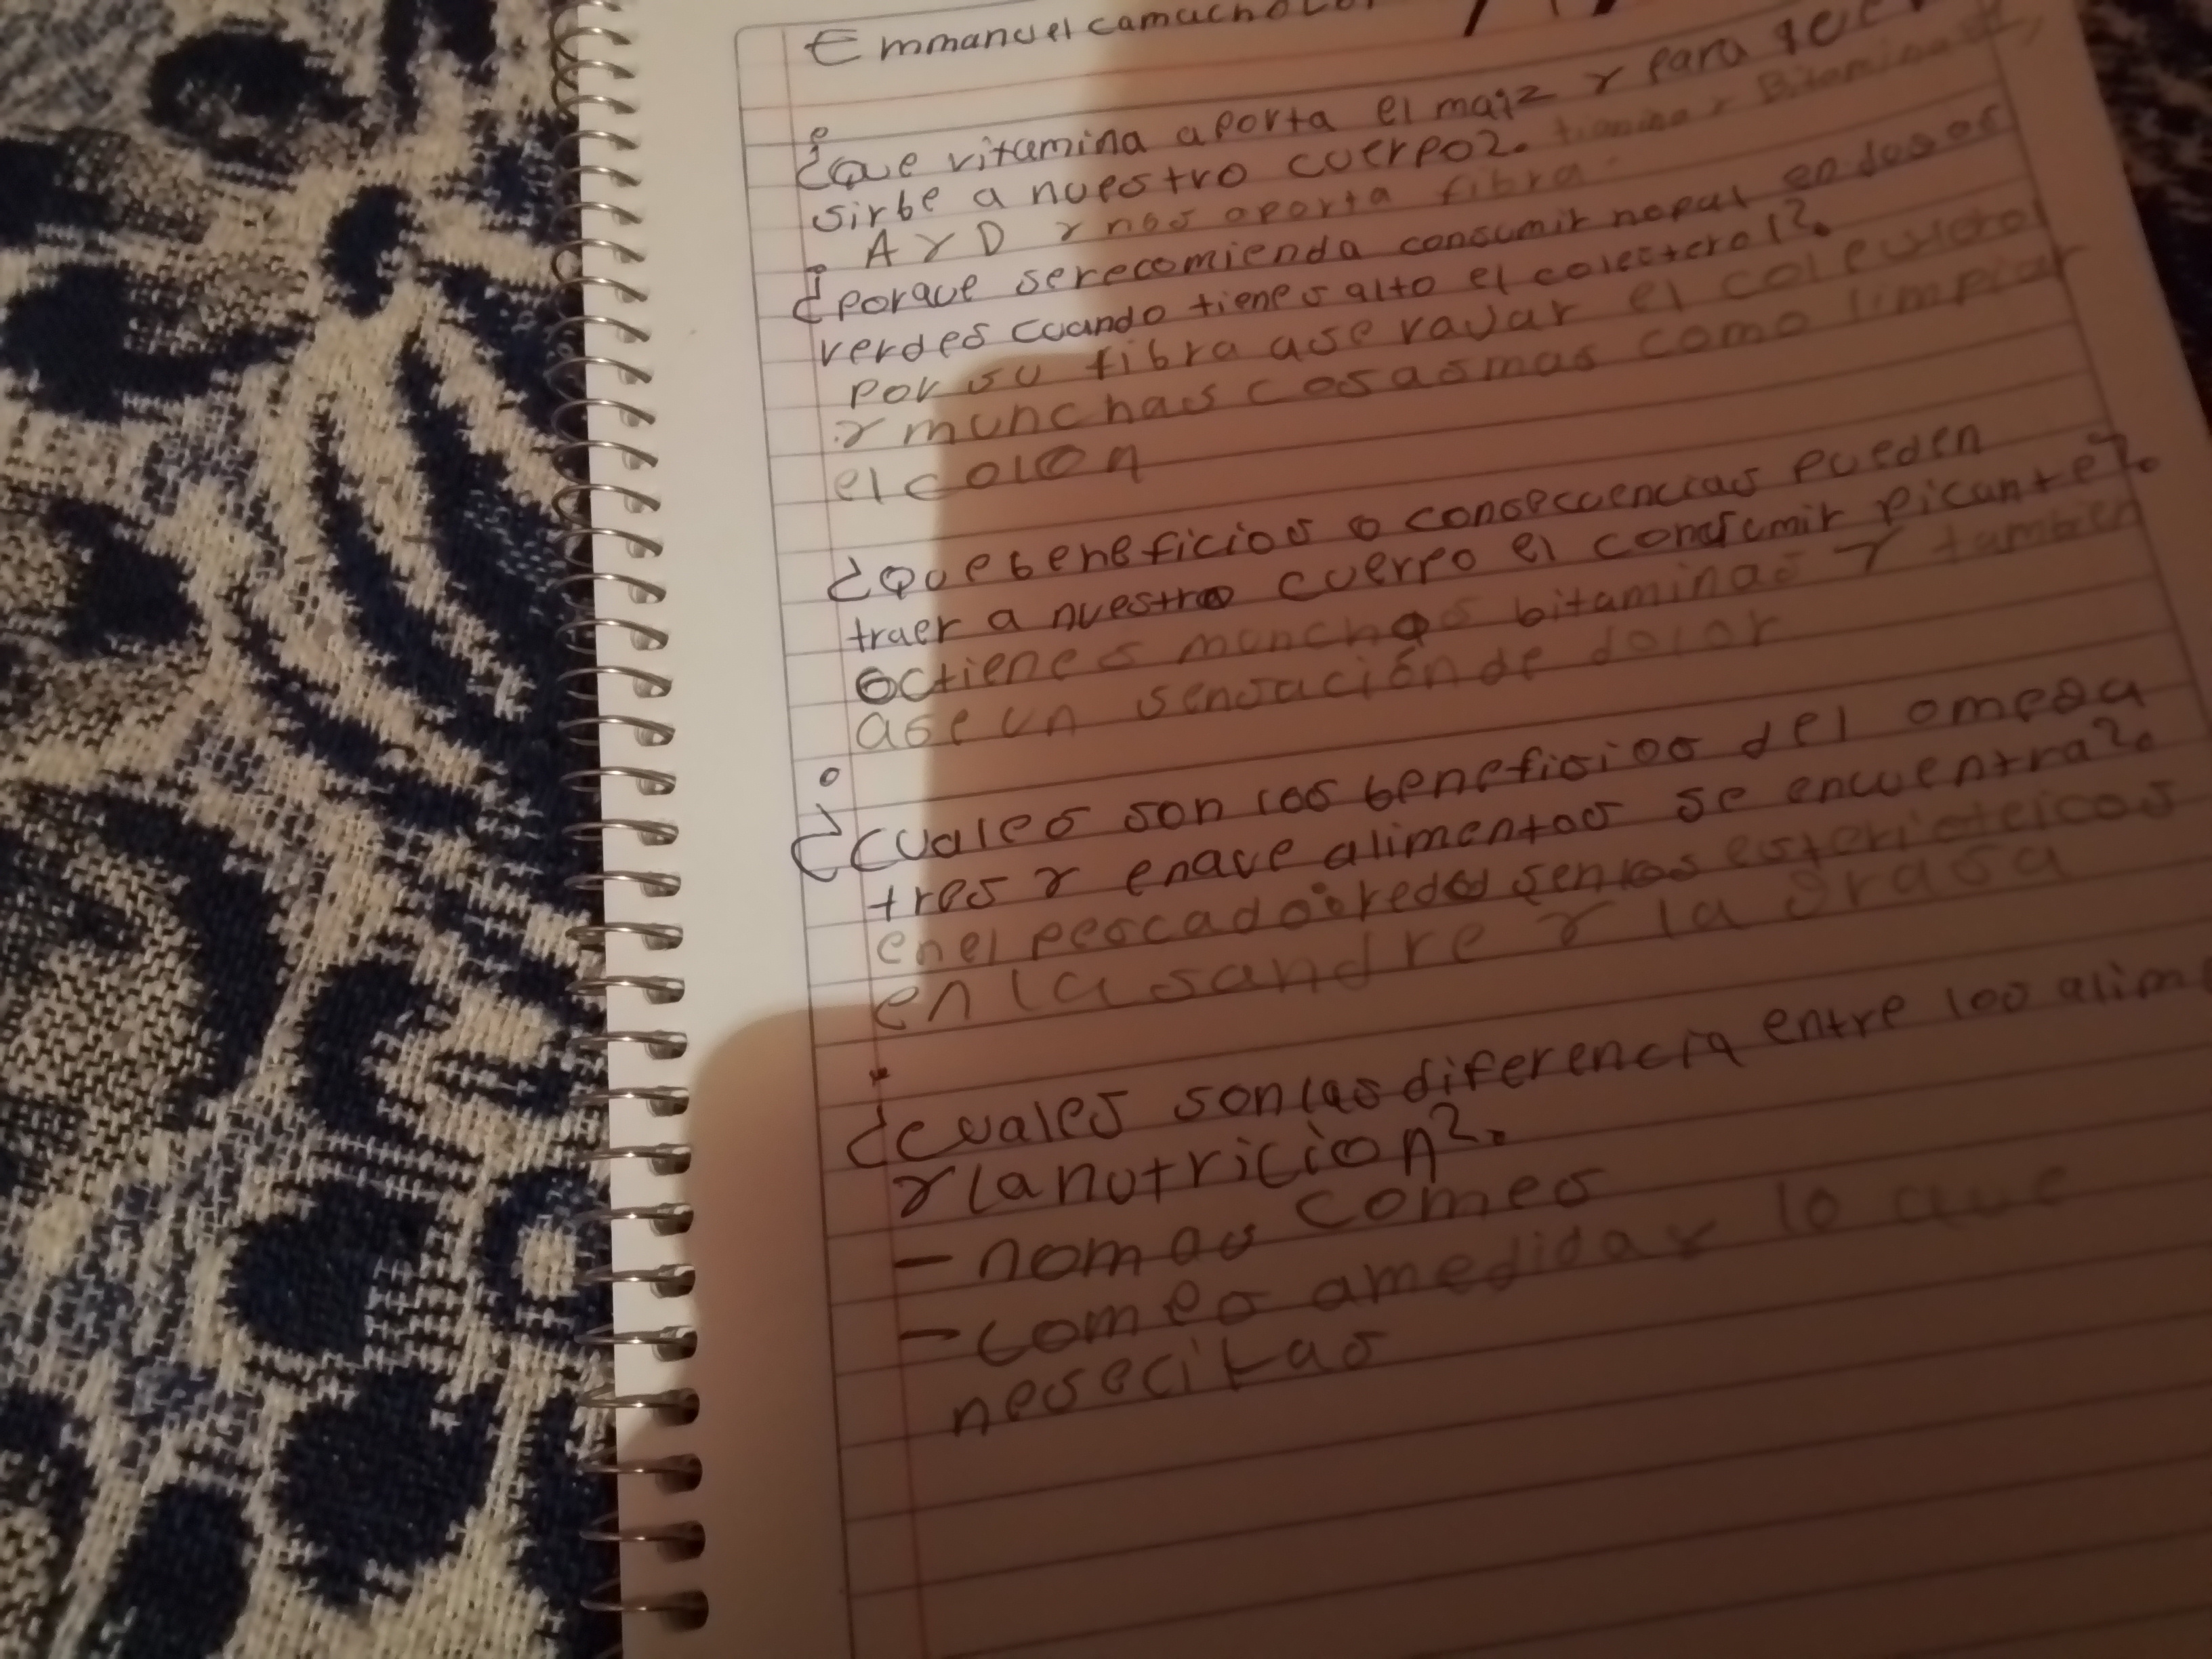 Emmanuel camacho
¿que vitamina aporta el maiz y para
sirbe a nuestro cuerpo?. tiamina y Bitaminas
A y D y nos aporta fibra.
¿porque serecomienda consumir nopal en
verdes cuando tienes alto el colecterol?.
por su fibra ase vajar el
y munchas cosasmas como limpiar
el colon
¿Que beneficios o consecuencias pueden
traer a nuestro cuerpo el consumir picante?.
octienes munchas bitaminas y tambien
ase un sensación de dolor
¿cuales son los beneficios del omega
tres y enque alimentos se encuentra?.
enel pescado redus senlos
en la sandre y la grasa
¿cuales sonlas diferencia entre los
y la nutricion?.
- nomas comes
- comes amedida y lo que
nesecitas